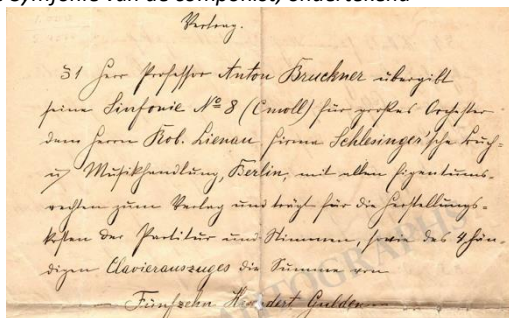 symfonie van de componist, ondertekend
Vertrag.
§1 Herr Professor Anton Bruckner übergibt
seine Sinfonie No 8 (Cmoll) für großes Orchester
dem Herrn Rob. Lienau, Firma Schlesinger'sche Buch-
u. Musikhandlung, Berlin, mit allen Eigentums-
rechten zum Verlag und trägt für die Herstellungs-
kosten der Partitur und Stimmen, sowie des 4hän-
digen Clavierauszuges die Summe von
Fünfzehn Hundert Gulden